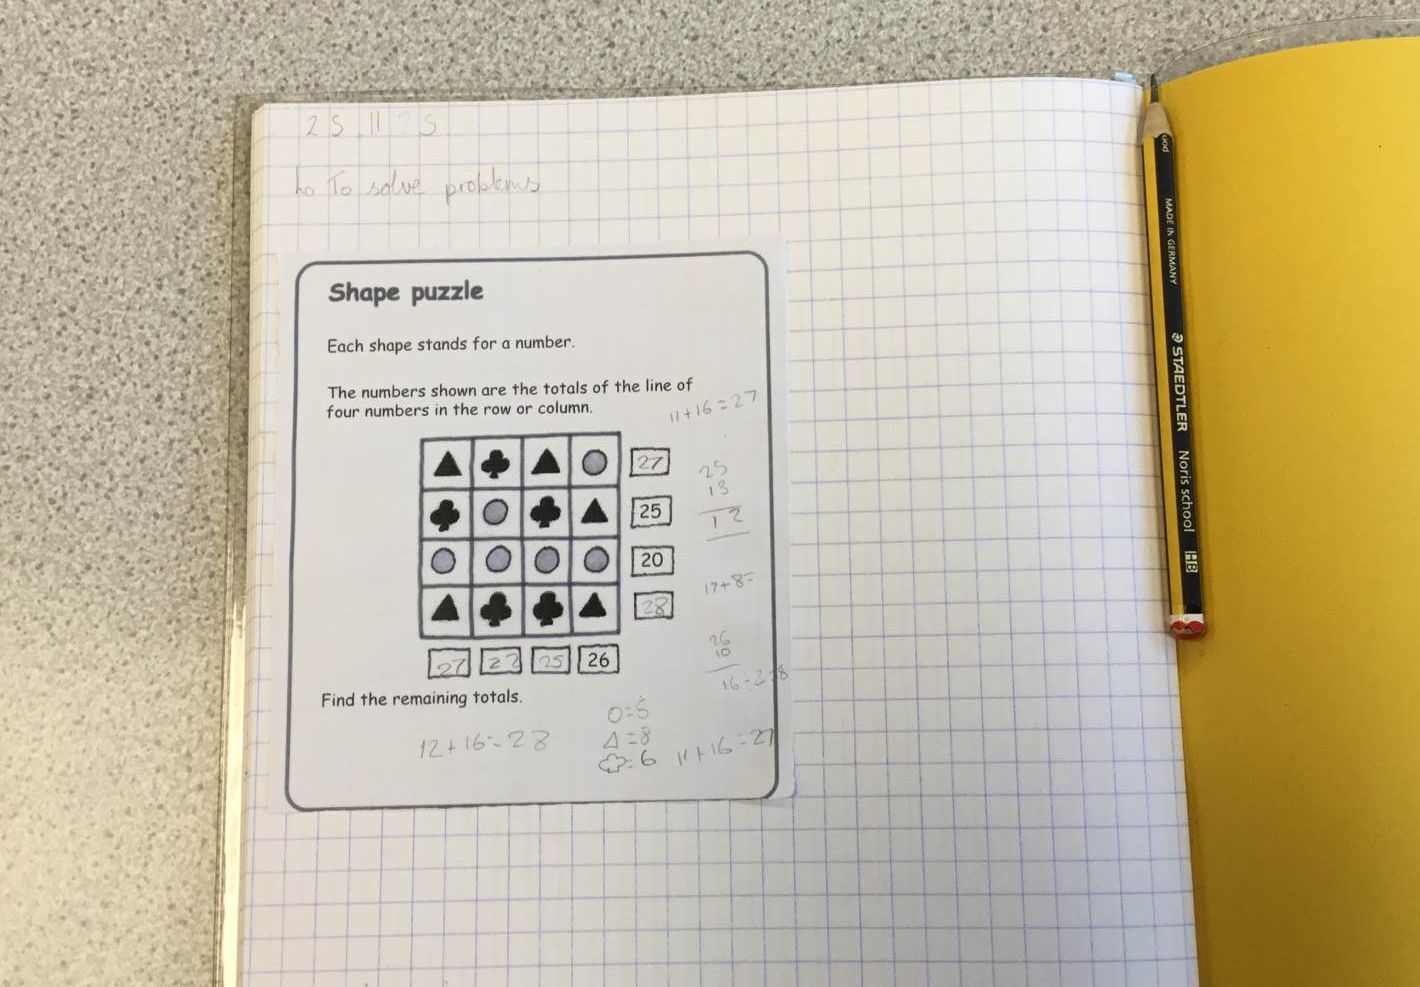 2 5 11 2 5
Lo To solve problems
Shape puzzle
Each shape stands for a number.
The numbers shown are the totals of the line of
four numbers in the row or column.
11+16=27
27
25
20
28
27 22 25 26
25
13
12
17+8=
26
10
16=2=8
Find the remaining totals.
12+16=28
O=5
△=8
=6
11+16=27
MADE IN GERMANY
STAEDTLER
Noris school
HB